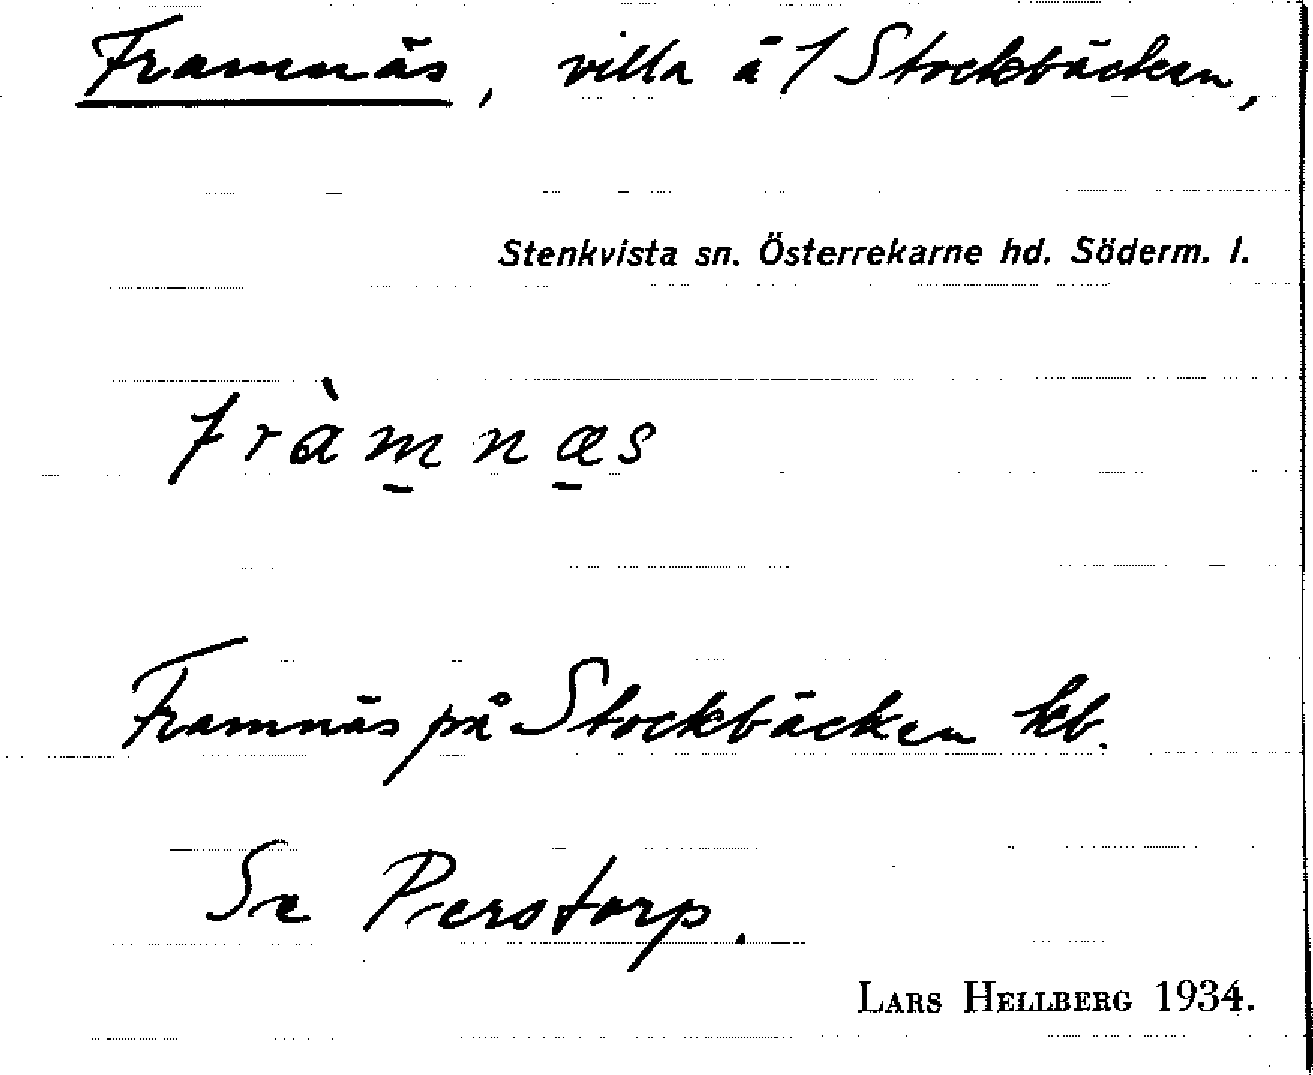 Framnäs, villa å 1 Stockbäcken,
Stenkvista sn. Österrekarne hd. Söderm. l.
fràm̱næ̱s
Framnäs på Stockbäcken kb.
Se Perstorp.
LARS HELLBERG 1934.